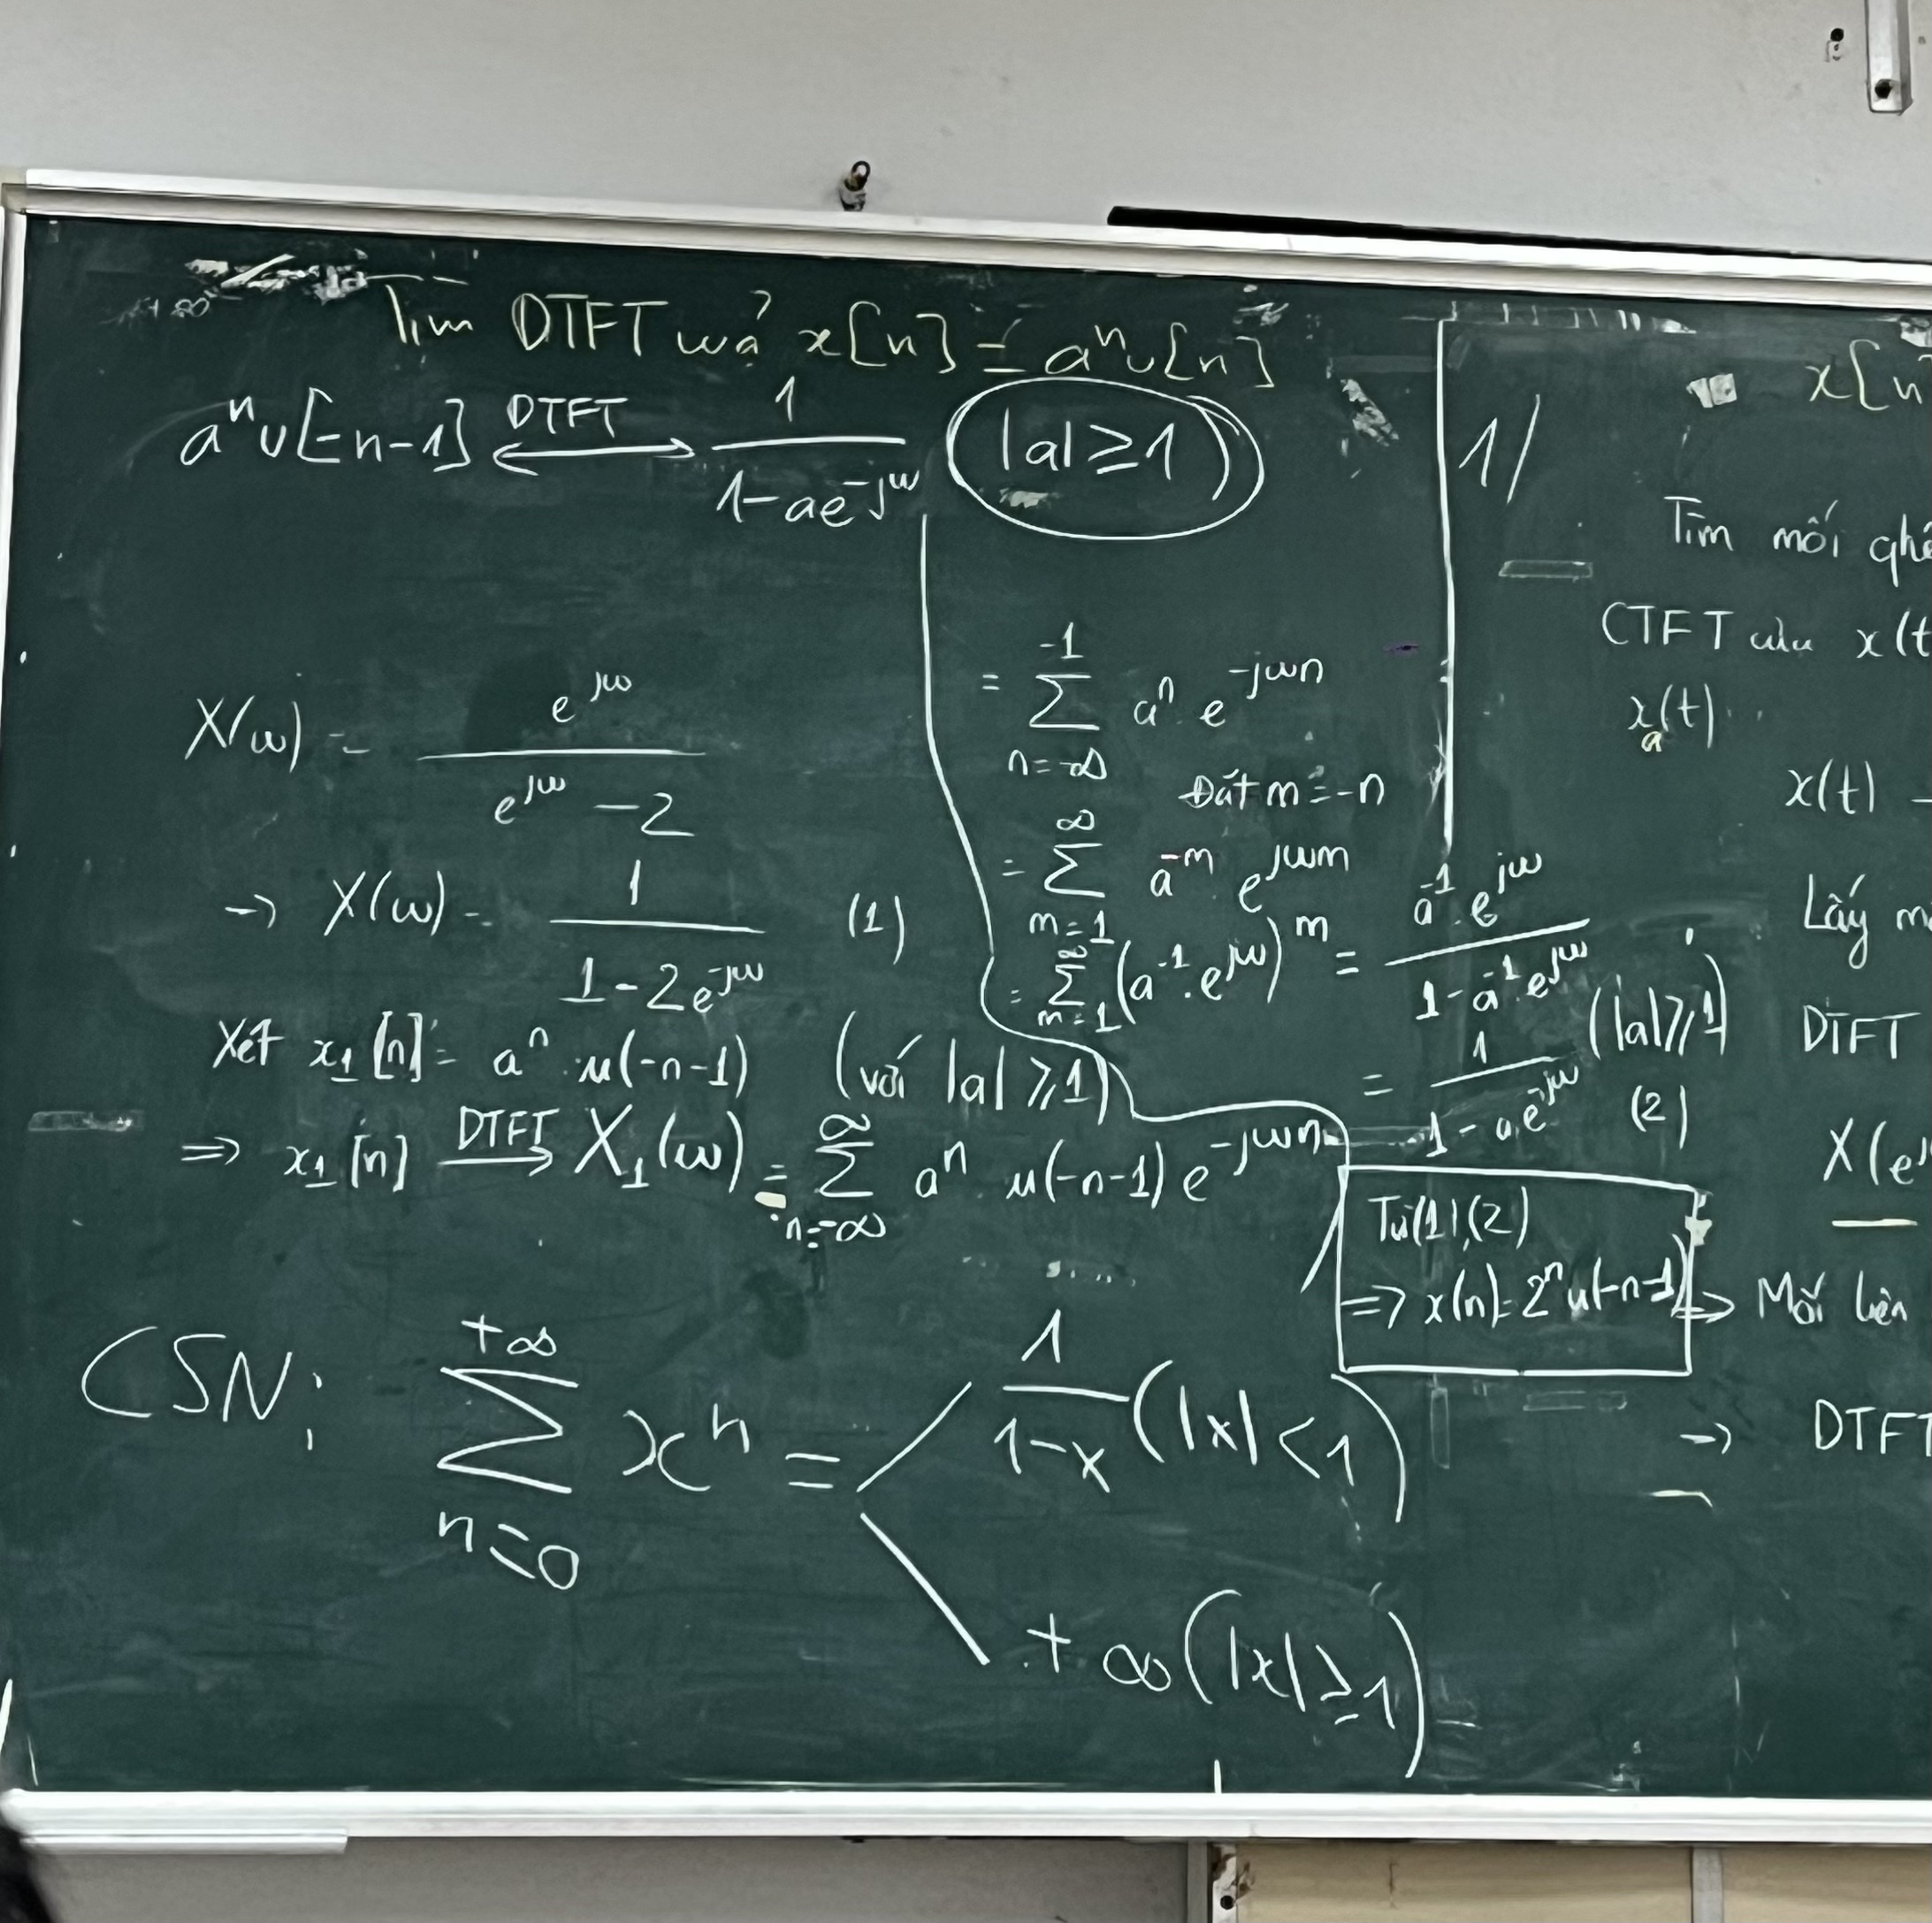 Tìm DTFT của x[n] = aⁿu[n]
aⁿu[-n-1] ⟷ DTFT 1/(1-ae^-jω) |a| ≥ 1
X(ω) = e^jω/(e^jω - 2)
→ X(ω) = 1/(1-2e^-jω) (1)
Xét x₁[n] = aⁿ.u(-n-1) (với |a| ≥ 1)
⇒ x₁[n] DTFT→ X₁(ω) = ∑_{n=-∞}^{∞} aⁿ u(-n-1) e^-jωn
= ∑_{n=-∞}^{-1} aⁿ. e^-jωn
Đặt m = -n
= ∑_{m=1}^{∞} a^-m e^jωm
= ∑_{m=1}^{∞} (a^-1.e^jω)^m = a^-1.e^jω/(1-a^-1.e^jω)
= 1/(1-a.e^-jω) (|a| ≥ 1) (2)
Từ (1),(2)
⇒ x(n) = 2ⁿ u(-n-1)
CSN: ∑_{n=0}^{+∞} xⁿ = 1/(1-x) (|x| < 1)
+∞ (|x| ≥ 1)
x[n
1/
Tìm mối
CTFT của x(t
xₐ(t)
x(t) -
Lấy
DTFT
X(e^j
⇒ Mối liên
→ DTFT